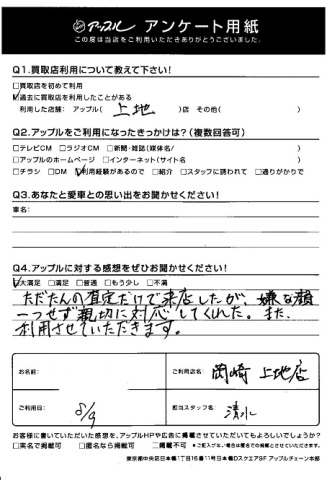 アップル アンケート用紙
この度は当店をご利用いただきありがとうございました。
Q1.買取店利用について教えて下さい!
□買取店を初めて利用
☑過去に買取店を利用したことがある
利用した店舗: アップル( 上地 )店 その他( )
Q2.アップルをご利用になったきっかけは?(複数回答可)
□テレビCM □ラジオCM □新聞・雑誌(媒体名/ )
□アップルのホームページ □インターネット(サイト名 )
□チラシ □DM ☑利用経験があるので □紹介 □スタッフに誘われて □通りがかりで
Q3.あなたと愛車との思い出をお聞かせください!
車名:
Q4.アップルに対する感想をぜひお聞かせください!
☑大満足 □満足 □普通 □もう少し □不満
ただたんの査定だけで来店したが、嫌な顔
一つせず親切に対応してくれた。また、
利用させていただきます。
お名前: ご利用店名: 岡崎 上地店
ご利用日: 8/9 担当スタッフ名: 清水
お客様に書いていただいた感想を、アップルHPや広告に掲載させていただいてもよろしいでしょうか?
□実名で掲載可 □匿名なら掲載可 □掲載不可 ※ご記入がない場合は匿名での掲載とさせていただきます。
東京都中央区日本橋1丁目16番11号日本橋Dスクエア9F アップルチェーン本部